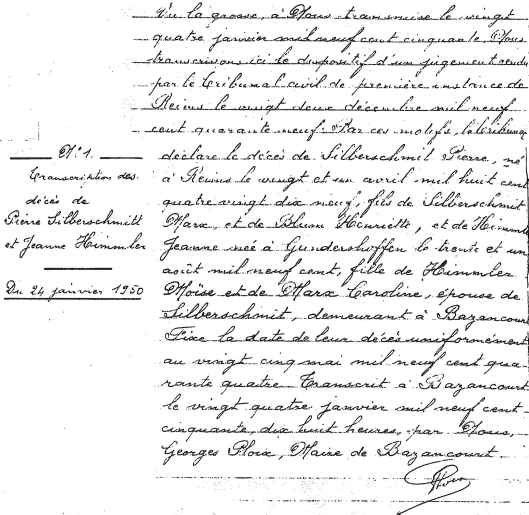 Vu la grosse, à Nous transmise le vingt
quatre janvier mil neuf cent cinquante. Nous
transcrivons ici le dispositif d'un jugement rendu
par le Tribunal civil de première instance de
Reims le vingt deux décembre mil neuf
cent quarante neuf. Par ces motifs, le Tribunal
déclare le décès de Silberschmit Pierre, né
à Reims le vingt et un avril mil huit cent
quatre vingt dix neuf, fils de Silberschmit
Marx, et de Blum Henriette, et de Himmler
Jeanne née à Gundershoffen le trente et un
août mil neuf cent, fille de Himmler
Moïse et de Marx Caroline, épouse de
Silberschmit, demeurant à Bazancourt
Fixe la date de leur décès uniformément
au vingt cinq mai mil neuf cent qua-
rante quatre. Transcrit à Bazancourt
le vingt quatre janvier mil neuf cent
cinquante, dix huit heures, par Nous,
Georges Ploix, Maire de Bazancourt.
Ploix
N° 1.
Transcription des
décès de
Pierre Silberschmitt
et Jeanne Himmler
Du 24 janvier 1950